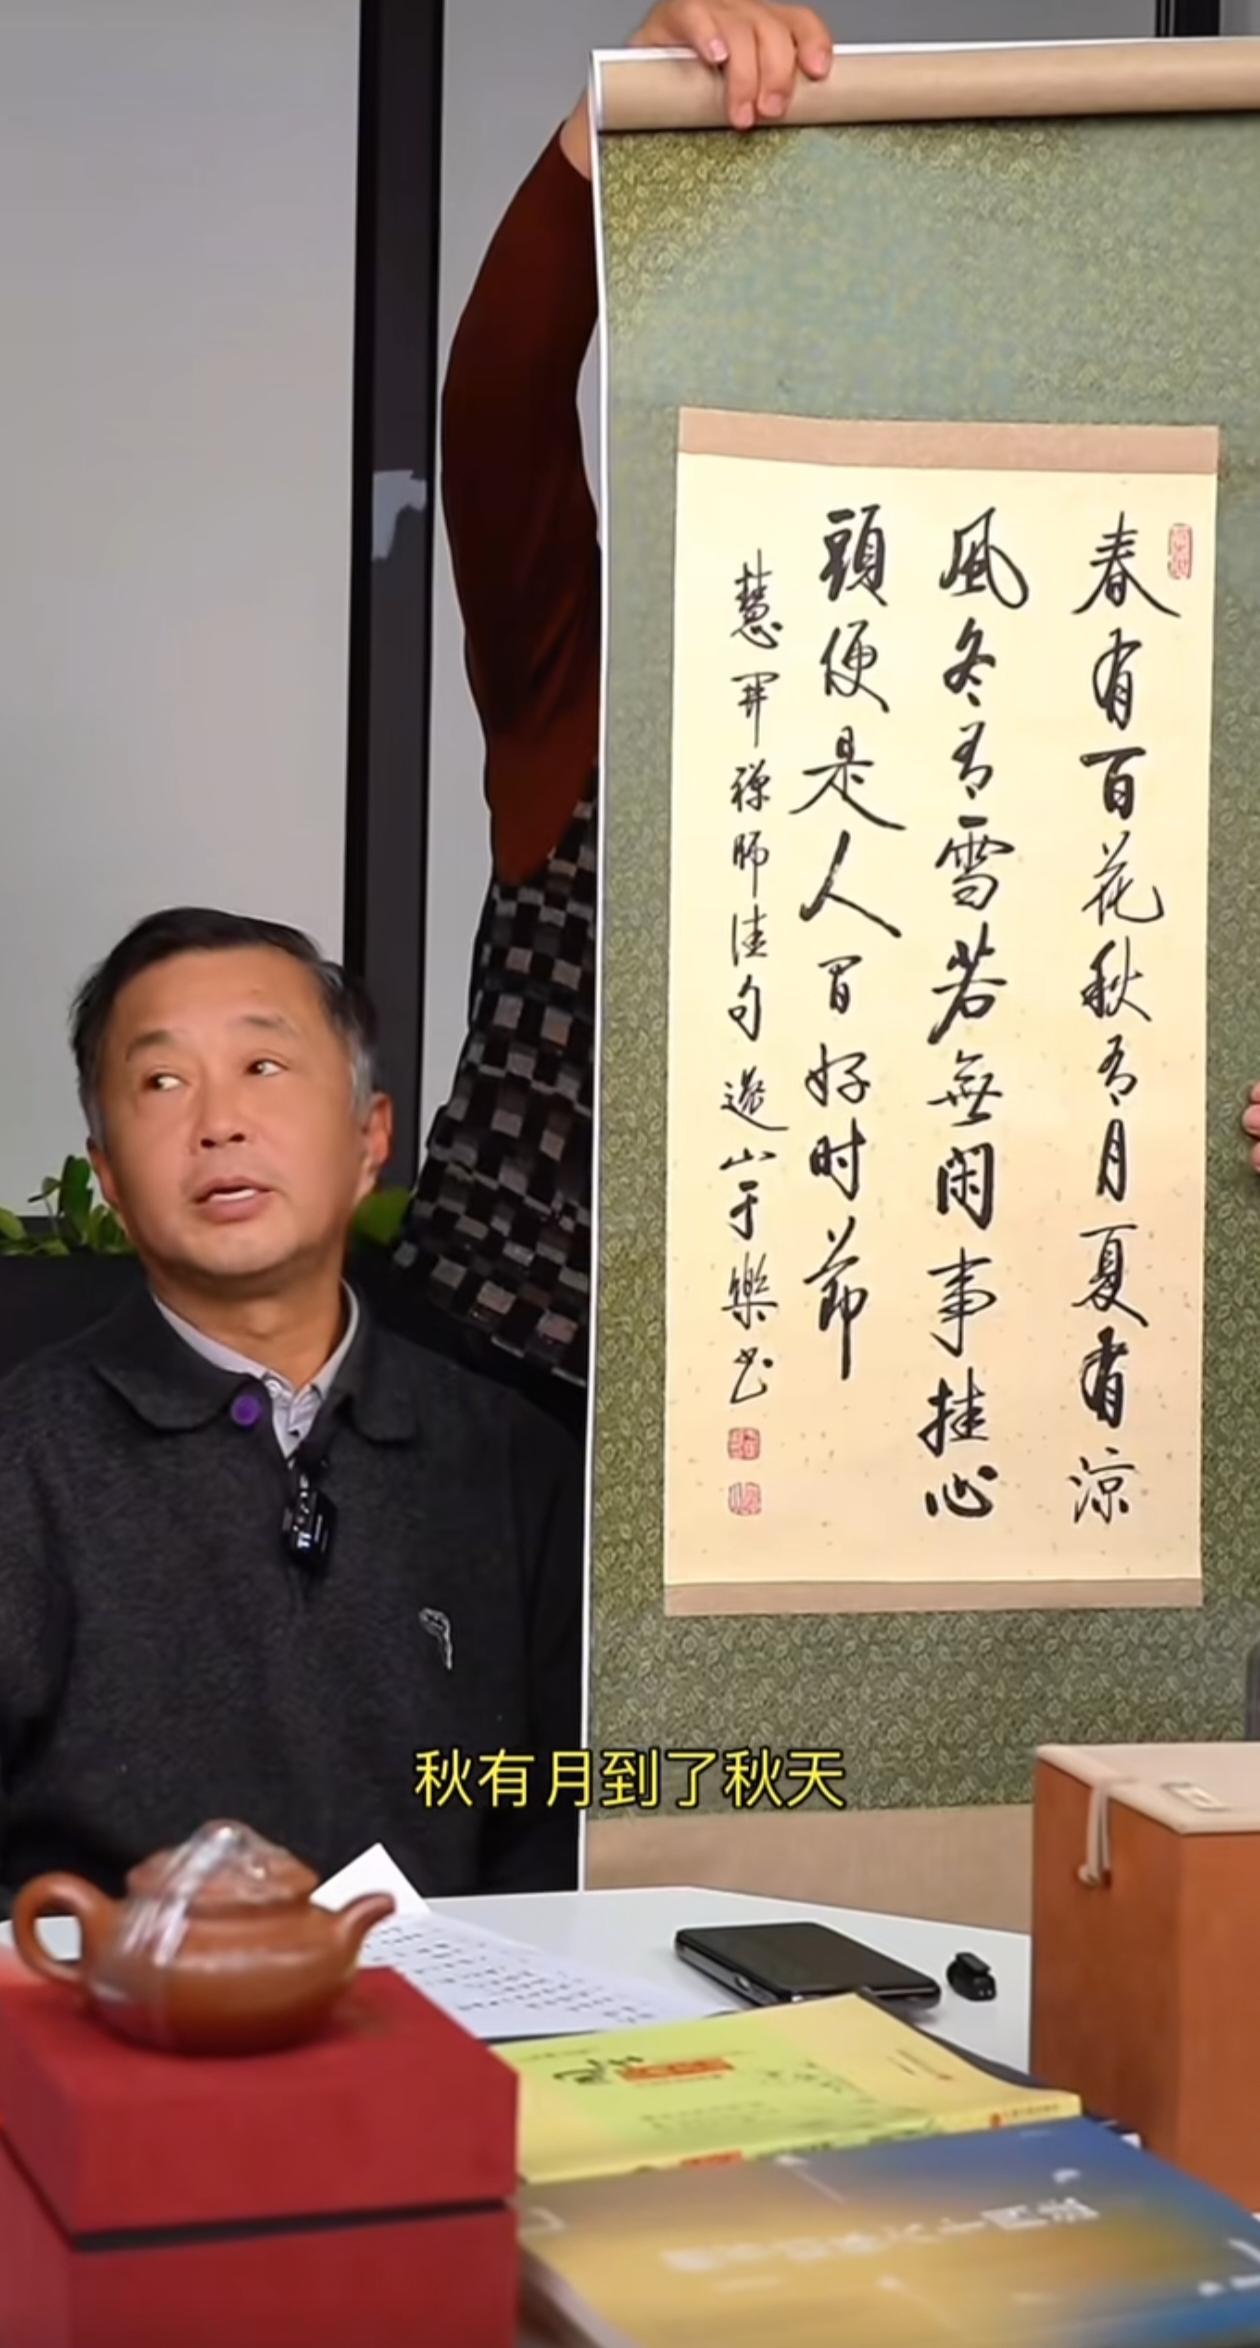 春有百花秋有月夏有涼
風冬有雪若無闲事挂心
頭便是人间好时节
慧開禅師佳句 邀山于樂书
秋有月到了秋天